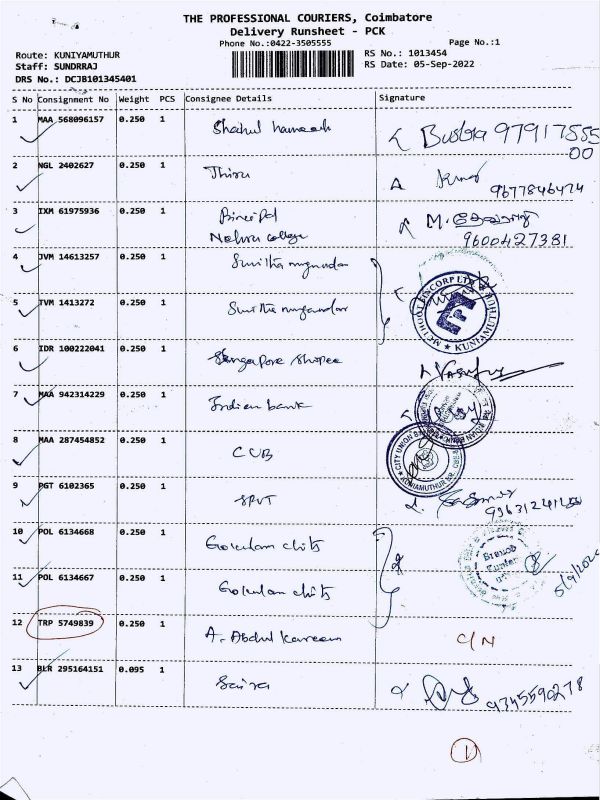 THE PROFESSIONAL COURIERS, Coimbatore
Delivery Runsheet - PCK
Phone No.:0422-3505555
Page No.:1
Route: KUNIYAMUTHUR
RS No.: 1013454
Staff: SUNDRRAJ
RS Date: 05-Sep-2022
DRS No.: DCJB101345401
S No Consignment No Weight PCS Consignee Details Signature
1 MAA 568096157 0.250 1 Shahul hameed
2 NGL 2402627 0.250 1 Thiru 9677846474
3 IXM 61975936 0.250 1 Principal
Nehru college 9600427381
4 JVM 14613257 0.250 1
5 TVM 1413272 0.250 1
KUNIAMUTHUR
6 IDR 100222041 0.250 1 Singapore Shopee
7 MAA 942314229 0.250 1 Indian bank
8 MAA 287454852 0.250 1 CUB
CITY UNION BANK
KUNIAMUTHUR BR.
9 PGT 6102365 0.250 1
10 POL 6134668 0.250 1 Gokulam chits
11 POL 6134667 0.250 1 Gokulam chits
12 TRP 5749839 0.250 1 A. Abdul kareem C/N
13 BLR 295164151 0.095 1 Saira 9345590278
1